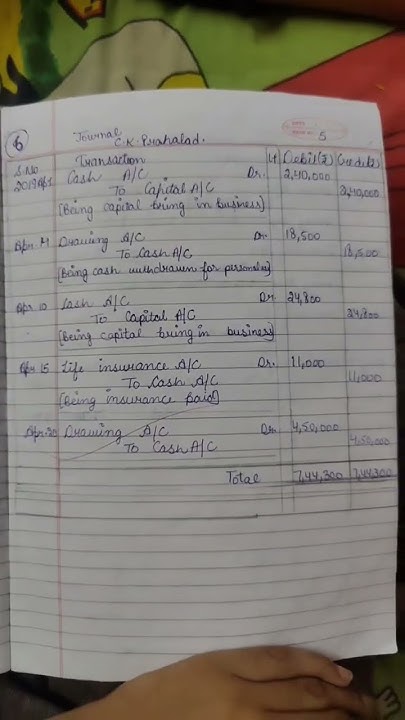 6
Journal
C.K. Prahalad.
5
S.No Transaction Lf Debit(₹) Credit(₹)
2019 Apr 1 Cash A/C Dr. 2,40,000
To Capital A/C 2,40,000
[Being capital bring in business]
Apr. Drawing A/C Dr. 18,500
To Cash A/C 18,500
[Being cash withdrawn for personal use]
Apr. 10 Cash A/C Dr. 24,800
To Capital A/C 24,800
[Being capital bring in business]
Apr. 15 Life insurance A/C Dr. 11,000
To Cash A/C 11,000
[Being insurance paid]
Apr. 30 Drawing A/C Dr. 4,50,000
To Cash A/C 4,50,000
Total 7,44,300 7,44,300